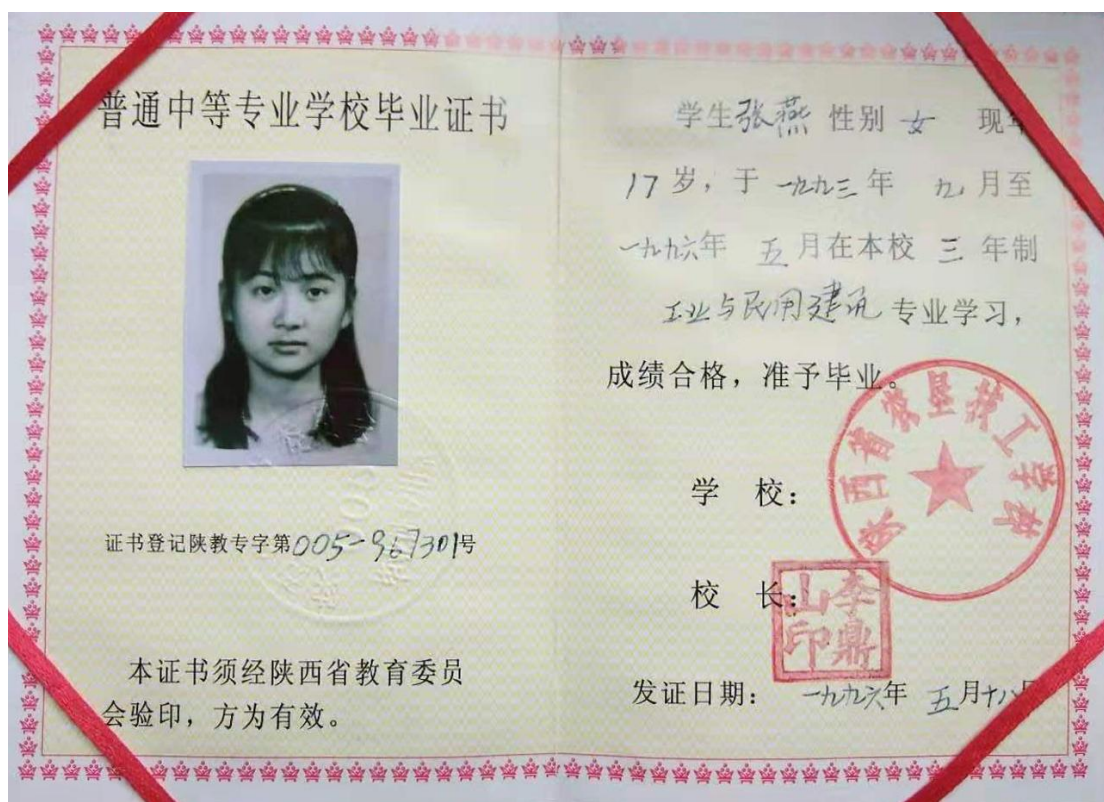 普通中等专业学校毕业证书
证书登记陕教专字第005-967301号
本证书须经陕西省教育委员
会验印，方为有效。
学生张燕 性别 女 现年
17岁，于 一九九三年 九月至
一九九六年 五月在本校 三 年制
工业与民用建筑 专业学习，
成绩合格，准予毕业。
陕西省农垦技工学校
学 校：
校 长：
李鼎山印
发证日期： 一九九六年 五月十八日